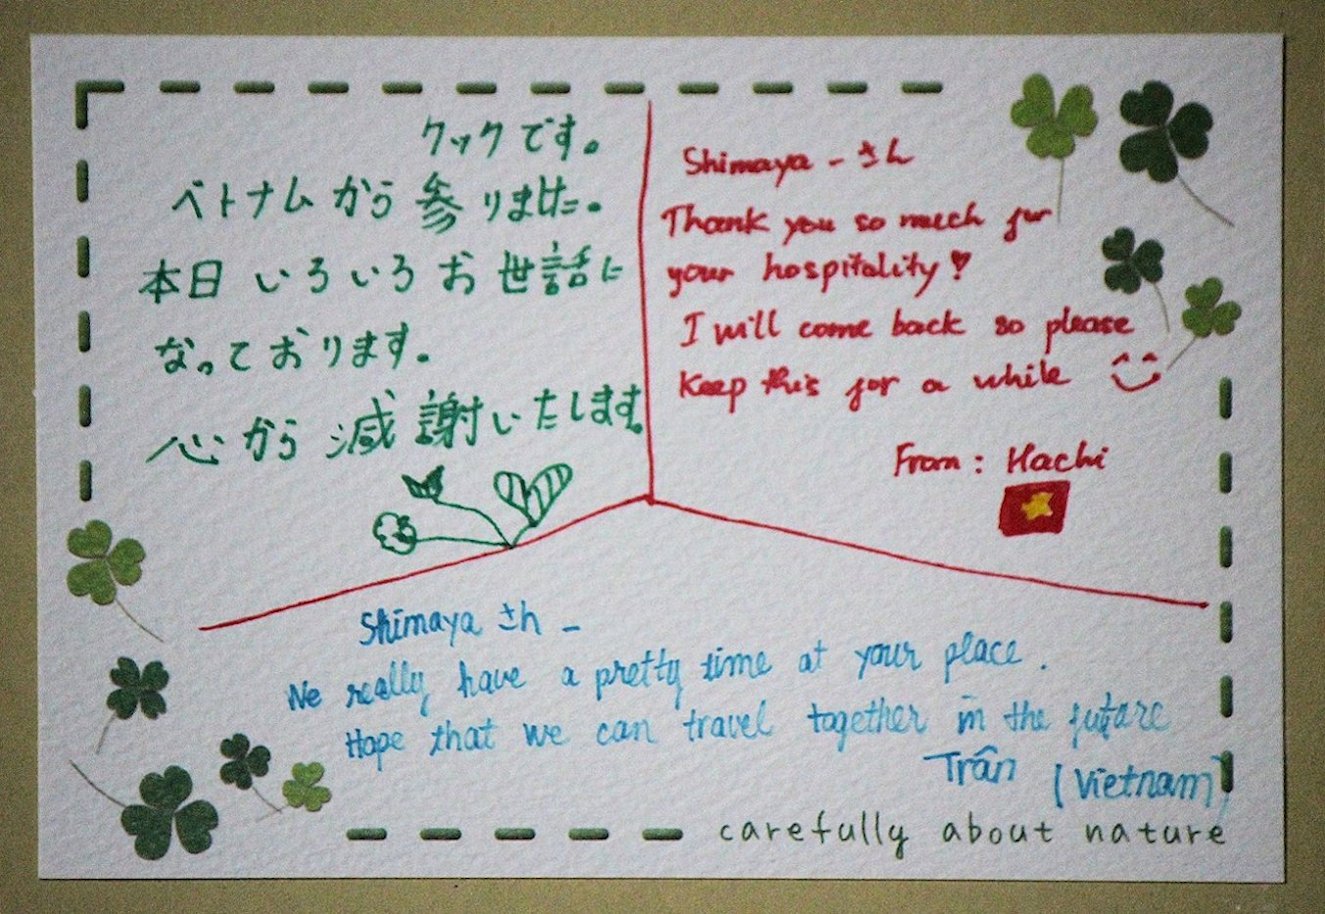 クックです。
ベトナムから参りました。
本日いろいろお世話に
なっております。
心から減謝いたします。
Shimaya - さん
Thank you so much for
your hospitality!
I will come back so please
Keep this for a while
From: Hachi
Shimaya さん -
We really have a pretty time at your place.
Hope that we can travel together in the future
Trân (Vietnam)
carefully about nature